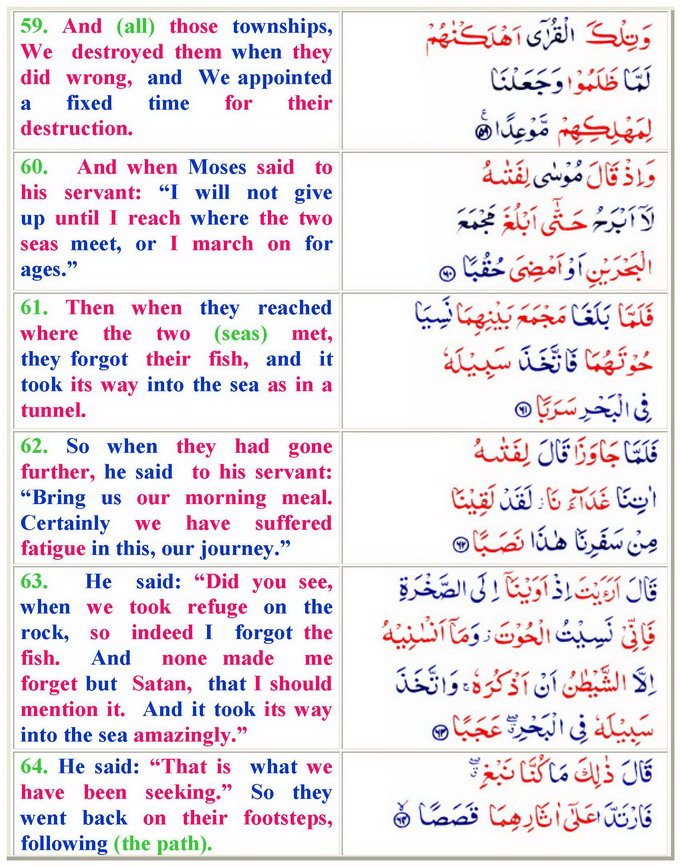 59. And (all) those townships,
We destroyed them when they
did wrong, and We appointed
a fixed time for their
destruction.
وَتِلْكَ الْقُرٰٓى اَهْلَكْنٰهُمْ
لَمَّا ظَلَمُوْا وَجَعَلْنَا
لِمَهْلِكِهِمْ مَّوْعِدًا ﴿۵۹﴾ ع
60. And when Moses said to
his servant: “I will not give
up until I reach where the two
seas meet, or I march on for
ages.”
وَاِذْ قَالَ مُوْسٰى لِفَتٰىهُ
لَآ اَبْرَحُ حَتّٰٓى اَبْلُغَ مَجْمَعَ
الْبَحْرَيْنِ اَوْ اَمْضِىَ حُقُبًا ﴿۶۰﴾
61. Then when they reached
where the two (seas) met,
they forgot their fish, and it
took its way into the sea as in a
tunnel.
فَلَمَّا بَلَغَا مَجْمَعَ بَيْنِهِمَا نَسِيَا
حُوْتَهُمَا فَاتَّخَذَ سَبِيْلَهٗ
فِى الْبَحْرِ سَرَبًا ﴿۶۱﴾
62. So when they had gone
further, he said to his servant:
“Bring us our morning meal.
Certainly we have suffered
fatigue in this, our journey.”
فَلَمَّا جَاوَزَا قَالَ لِفَتٰىهُ
اٰتِنَا غَدَآءَ نَا ز لَقَدْ لَقِيْنَا
مِنْ سَفَرِنَا هٰذَا نَصَبًا ﴿۶۲﴾
63. He said: “Did you see,
when we took refuge on the
rock, so indeed I forgot the
fish. And none made me
forget but Satan, that I should
mention it. And it took its way
into the sea amazingly.”
قَالَ اَرَءَيْتَ اِذْ اَوَيْنَآ اِلَى الصَّخْرَةِ
فَاِنِّىْ نَسِيْتُ الْحُوْتَ ز وَمَآ اَنْسٰنِيْهُ
اِلَّا الشَّيْطٰنُ اَنْ اَذْكُرَهٗ ج وَاتَّخَذَ
سَبِيْلَهٗ فِى الْبَحْرِ ق عَجَبًا ﴿۶۳﴾
64. He said: “That is what we
have been seeking.” So they
went back on their footsteps,
following (the path).
قَالَ ذٰلِكَ مَا كُنَّا نَبْغِ ق
فَارْتَدَّا عَلٰٓى اٰثَارِهِمَا قَصَصًا ﴿۶۴﴾